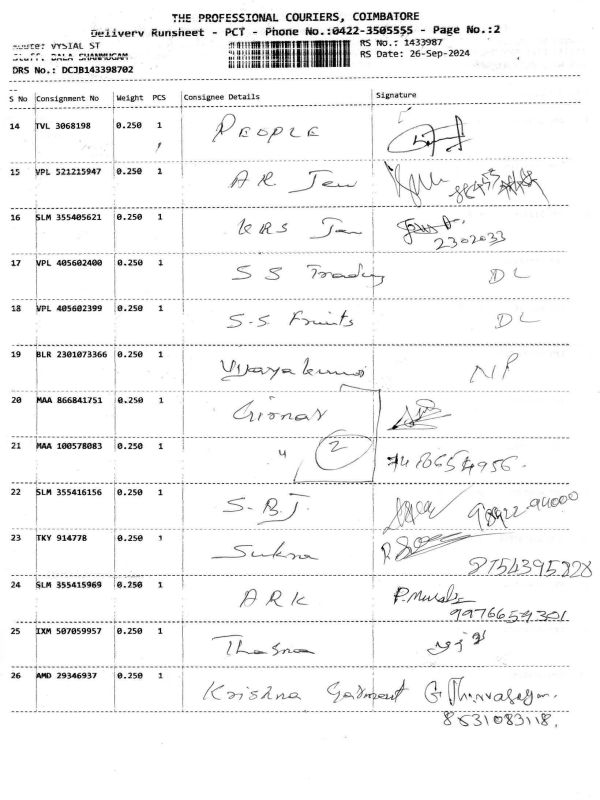 THE PROFESSIONAL COURIERS, COIMBATORE
Delivery Runsheet - PCT - Phone No.:0422-3505555 - Page No.:2
Route: VYSIAL ST
RS No.: 1433987
Staff: BALA SHANMUGAM
RS Date: 26-Sep-2024
DRS No.: DCJB143398702
S No Consignment No Weight PCS Consignee Details Signature
14 TVL 3068198 0.250 1 PEOPLE
15 VPL 521215947 0.250 1 AR Jew
16 SLM 355405621 0.250 1 KRS Jew
2302033
17 VPL 405602400 0.250 1 S S Trading DL
18 VPL 405602399 0.250 1 S-S Fruits DL
19 BLR 2301073366 0.250 1 Vijayakumar NP
20 MAA 866841751 0.250 1
21 MAA 100578083 0.250 1 " 2
22 SLM 355416156 0.250 1 S-BJ. 98922-94000
23 TKY 914778 0.250 1
8754395228
24 SLM 355415969 0.250 1 ARK
9976654301
25 IXM 507059957 0.250 1
26 AMD 29346937 0.250 1 Krishna Garment
8531083118.